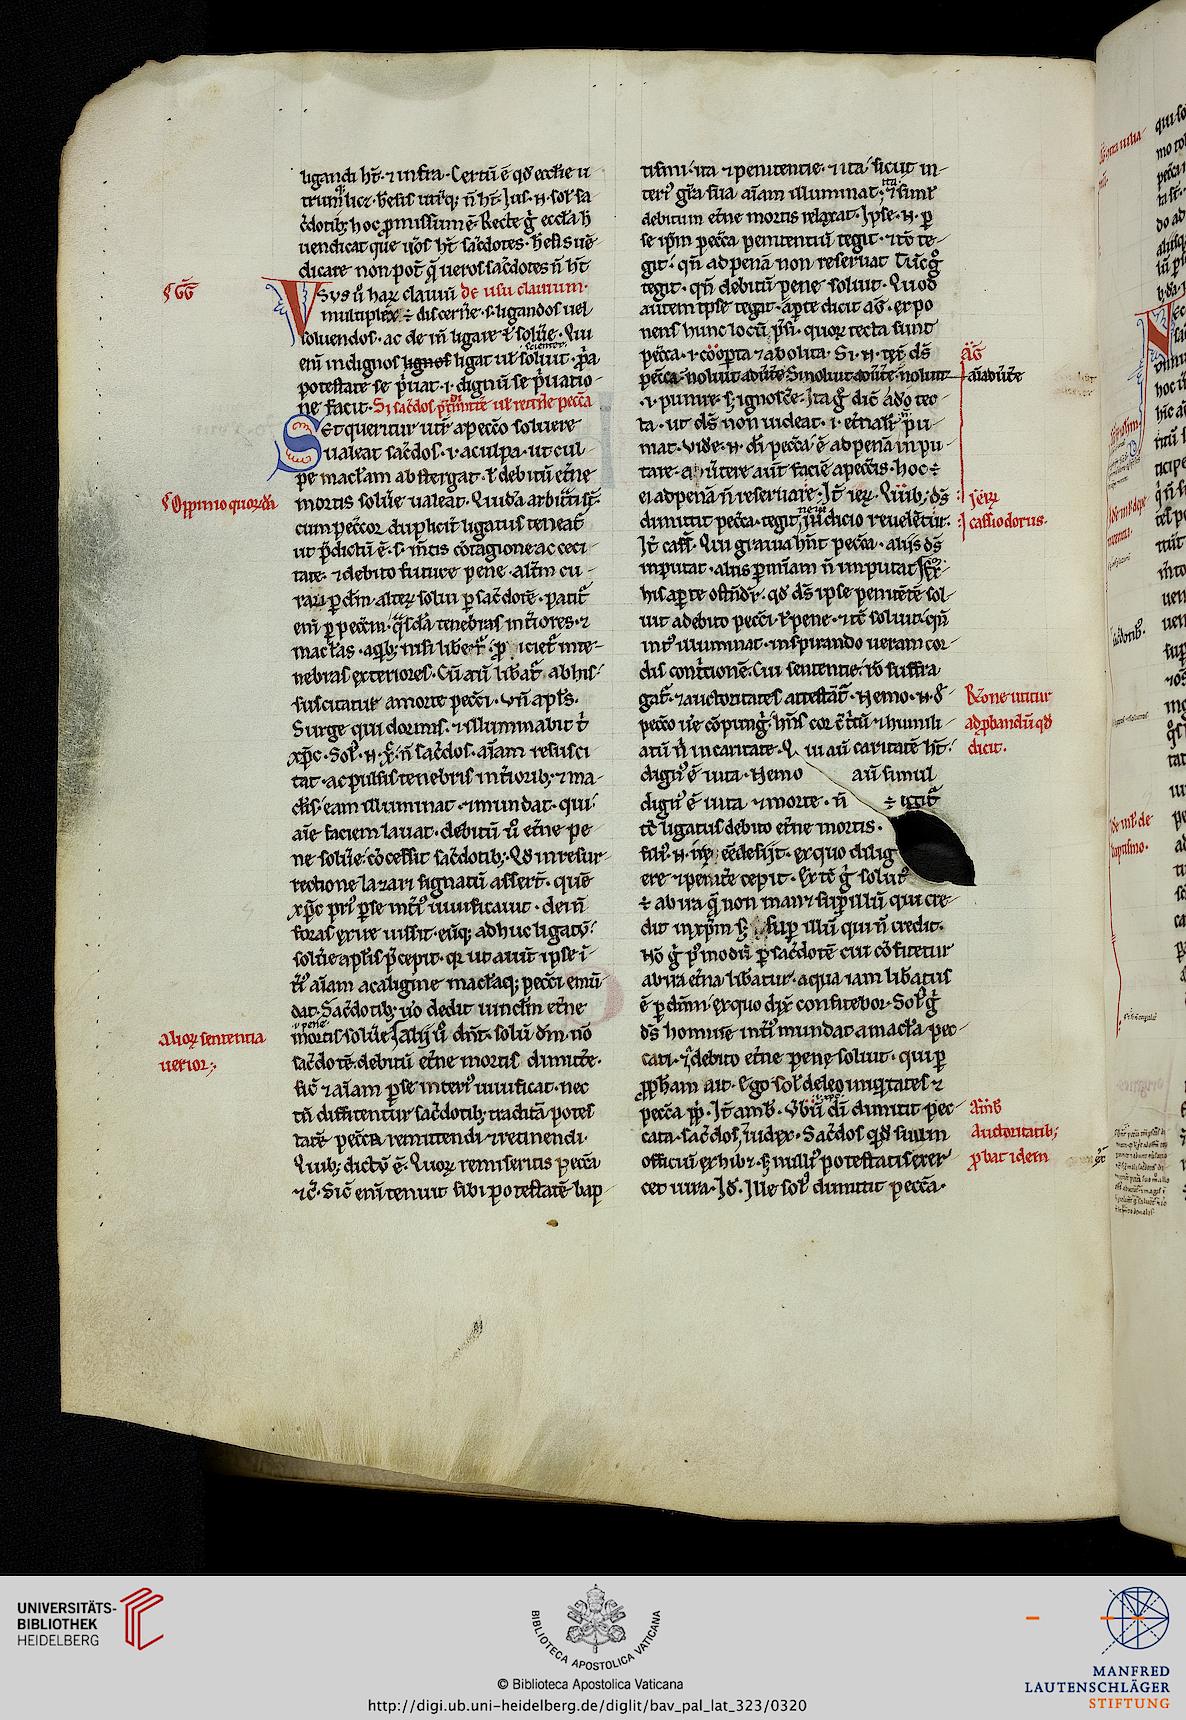 ligandi ht̄. ⁊ infra. Certū ē qd̄ ecclīe u
trumq; licꝫ. hr̄esis utrūq; n̄ ht̄. Ius .n. sol' sa
c̄dotib; hoc ꝑmissum ē. Recte ḡ eccl̄a h̄
uendicat que ūos ht̄ sac̄dotes. hr̄esis uē
dicare non pot̄ q̄ ueros sac̄dotes n̄ ht̄
Vsus ū haꝝ clauiū de usu clauium.
multiplex ÷ discerne .s. ligandos uel
soluendos. ac dein̄ ligare ł soluēe. Qui
eni indignos ligat uł soluit. ꝓpa
potestate se p̄uat .i. dignū se p̄uatio-
ne facit. Si sac̄dos
Set queritur utrū a pecc̄o soluere
ualeat sac̄dos .i. a culpa. ut cul-
pe maculam abstergat. ł debitū et̄ne
mortis solūe ualeat. Quidā arbitti st̄
cum pecc̄or duplicit̄ ligatus teneat̄
ut p̄dictū ē .s. m̄tis cōtagione ac ceci-
tate. ⁊ debito future pene. alt̄m cu-
rari ꝑ dm̄ alteꝝ solui ꝑ sac̄dotē. patit̄
eni ꝑ pecc̄m. q̄sdā tenebras int̄iores. ⁊
mac̄las. a quib; nisi libet̄. inte-
nebras exteriores. Cū aū lib̄at̄ ab his
suscitatur a morte pecc̄i. vn̄ apl̄s.
Surge qui dormis. ⁊ illuminabit t̄
xp̄c. Sol' .n. xp̄c n̄ sac̄dos. aīam resusci
tat. ac pulsis tenebris int̄iorib; ⁊ ma-
cl̄is. eam illuminat. ⁊ mundat. qui
aīe faciem lauat. debitū ū et̄ne pe
ne solūe cōcessit sac̄dotib;. Qd̄ in resur-
rectione lazari signatū asserūt. quē
xp̄c pri ꝑ se int̄i uiuificauit. dein̄
foras exire iussit. eūq; adhuc ligatū
solūe apl̄is p̄cepit. qr ut aiūt ipse ī
t̄i aīam a caligine maclaq; pecc̄i emū-
dat. Sac̄dotib; ūo dedit uinclm et̄ne
mortis solūe. Alij ū dn̄t. solū dm̄. nō
sac̄dotē. debitū et̄ne mortis dimitte.
sic̄ ⁊ aīam ꝑ se interi uiuificat. nec
tn̄ diffitentur sac̄dotib; traditā potes
tatē pecc̄a remittendi ⁊ retinendi.
Quib; dictū ē. Quoꝝ remiseritis pecc̄a
⁊c̄. Sic̄ eni tenuit sibi potestatē bap-
¶ GG
¶ Oppinio quorūdā
alioꝝ sententia
uerior;.
tismi. ita ⁊ penitentie. ⁊ ita sicut in-
teri' gr̄a sua aīam illuminat. ita ⁊ simł
debitum et̄ne mortis relaxat. Ipse .n. ꝑ
se ip̄m pecc̄a penitentiū tegit. ⁊ tc̄ te-
git. qn̄ ad penā non reseruat. Tūc g̊
tegit. qn̄ debitū pene soluit. Quod
autem ipse tegat. aꝑte dicit aḡ. expo
nens hunc locū ps̄i. quoꝝ tecta sunt
pecc̄a .i. coopta ⁊ abolita. Si .n. texit ds̄
pecc̄a. noluit aduertere. Si noluit aduertere noluit aīaduertere
.i. punire. s; ignosc̄e. Ita g̊ dic̄ a dō tec-
ta. ut ds̄ non uideat .i. et̄naliꝝ pu-
niat. Vide .n. di pecc̄a ē ad penā inpu-
tare. auertere aut̄ faciē a pecc̄is. hoc ÷
ei ad penā n̄ reseruare. It̄ ier̄. Quib; ds̄
dimittit pecc̄a. tegit. ne in iudicio reuelēt̄ur.
It̄ cass̄. Qui grauia hn̄t pecc̄a. alijs ds̄
inputat. aliis ꝑ mīam n̄ inputat. Ex
his aꝑte ostndr̄. qd̄ ds̄ ipse penitētē sol-
uit a debito pecc̄i ł pene. ⁊ tc̄ soluit. qn̄
int' illuminat. inspirando ueram cor-
dis cont̄itionē. Cui sententie rō suffra
gat̄. ⁊ auctoritates attestāt̄. Nemo .n. d̄
pecc̄o ūe cōpungit̄. hn̄s cor t̄itū ⁊ humili-
atū n̄ in caritate. Qui aū caritatē ht̄.
dign' ē uita. Nemo aū simul
dign' ē uita ⁊ morte. n̄ ÷ igit̄
tc̄ ligatus debito et̄ne mortis.
fili' .n. ire. ee desijt. ex quo dilig
ere ⁊ penit̄e cepit. Ex tc̄ ḡ solut'
÷ ab ira q̄ non manꝫ suꝑ illū qui cre-
dit in xp̄m s; suꝑ illū qui n̄ credit.
Nō ḡ p'modū ꝑ sac̄dotē cui cōfitetur
ab ira et̄na lib̄atur. a qua iam lib̄atus
ē ꝑ dn̄m. ex quo dix̄ confitebor. Sol' ḡ
ds̄ hominē int'i mundat a mac̄la pec-
cati. ⁊ debito et̄ne pene soluit. qui ꝑ
ꝓph̄am ait. Ego sol' deleo iniq̄tates ⁊
pecc̄a pp̄. It̄ amb̄. Vbū di dimittit pec-
cata. sac̄dos iudex. Sac̄dos qd̄ suum
officiū exhibꝫ. s; nulli' potestatis exer-
cet iura. Id̄. Ille sol' dimittit pecc̄a.
AḠ
Ier̄
cassiodorus.
Rōne utitur
ad ꝓbandū qd̄
dicit.
Amb̄
Auctoritatib;
ꝓbat idem
UNIVERSITÄTS-
BIBLIOTHEK
HEIDELBERG
BIBLIOTECA APOSTOLICA VATICANA
© Biblioteca Apostolica Vaticana
http://digi.ub.uni-heidelberg.de/diglit/bav_pal_lat_323/0320
MANFRED
LAUTENSCHLÄGER
STIFTUNG